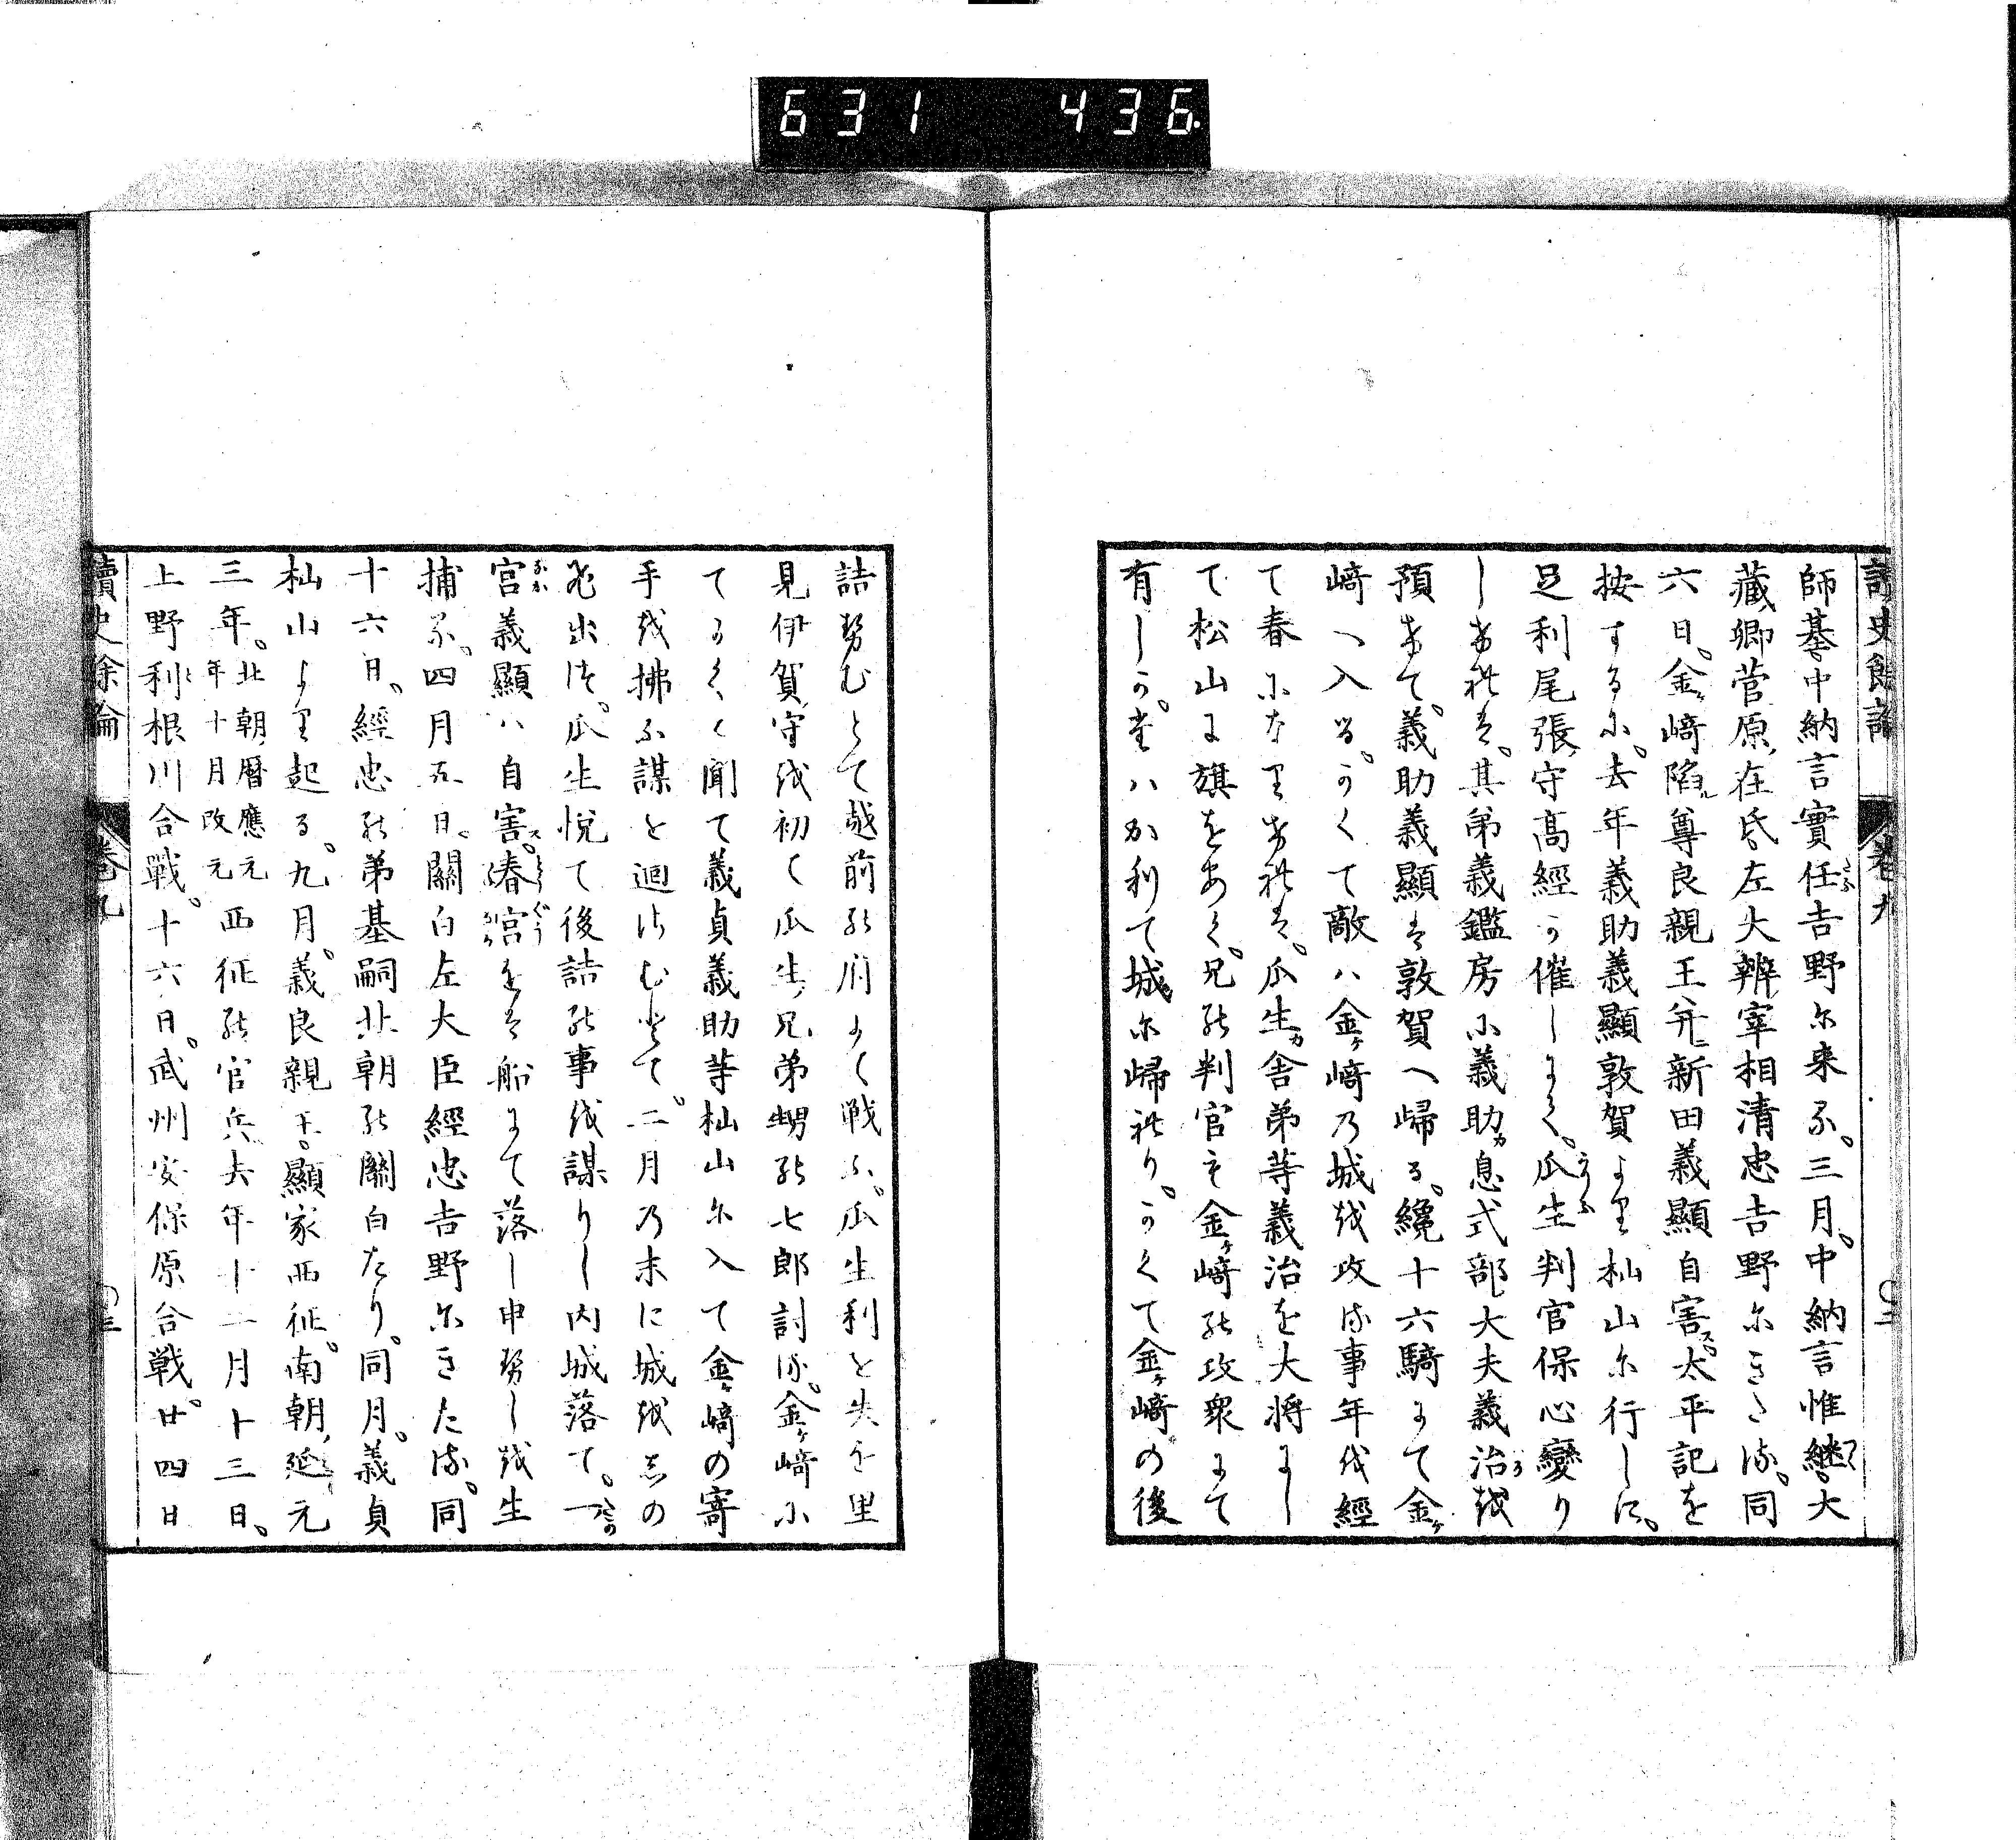 631 436.
讀史餘論 巻九 〇三
師基中納言實任吉野尓来る三月中納言惟継大
藏卿菅原在氏左大辨宰相清忠吉野尓きた流同
六日金ヶ﨑陷ル尊良親王幷ニ新田義顯自害ス太平記を
按する尓去年義助義顯敦賀より杣山尓行しに
足利尾張守高經か催しよく瓜生判官保心變り
しあれは其弟義鑑房小義助カ息式部大夫義治越
預あて義助義顯は敦賀へ歸る纔十六騎よて金ヶ
﨑へ入るかくて敵ハ金ヶ﨑乃城越攻流事年越經
て春小なりあれは瓜生カ舎弟等義治を大将よし
て松山よ旗をあく兄能判官も金ヶ﨑能攻衆よて
有しか堂ハかりて城尓歸れりかくて金ヶ﨑の後
詰勢むとて越前能府よく戦ふ瓜生利を失ひ里
見伊賀守越初く瓜生兄弟甥能七郎討流金ヶ﨑小
てかくく聞て義貞義助等杣山尓入て金ヶ﨑の寄
手越拂ふ謀を廻けむ登て二月乃末に城越志の
ひ出流瓜生悦て後詰能事越謀りし内城落て一の
宮義顯ハ自害ス春宮をは船よて落し申勢し越生
捕る四月五日關白左大臣經忠吉野尓きた流同
十六日經忠能弟基嗣北朝能關白たり同月義貞
杣山より起る九月義良親王顯家西征南朝延元
三年北朝暦應元年十月改元西征能官兵去年十二月十三日
上野利根川合戰十六日武州安保原合戰廿四日
讀史餘論 巻九 〇三